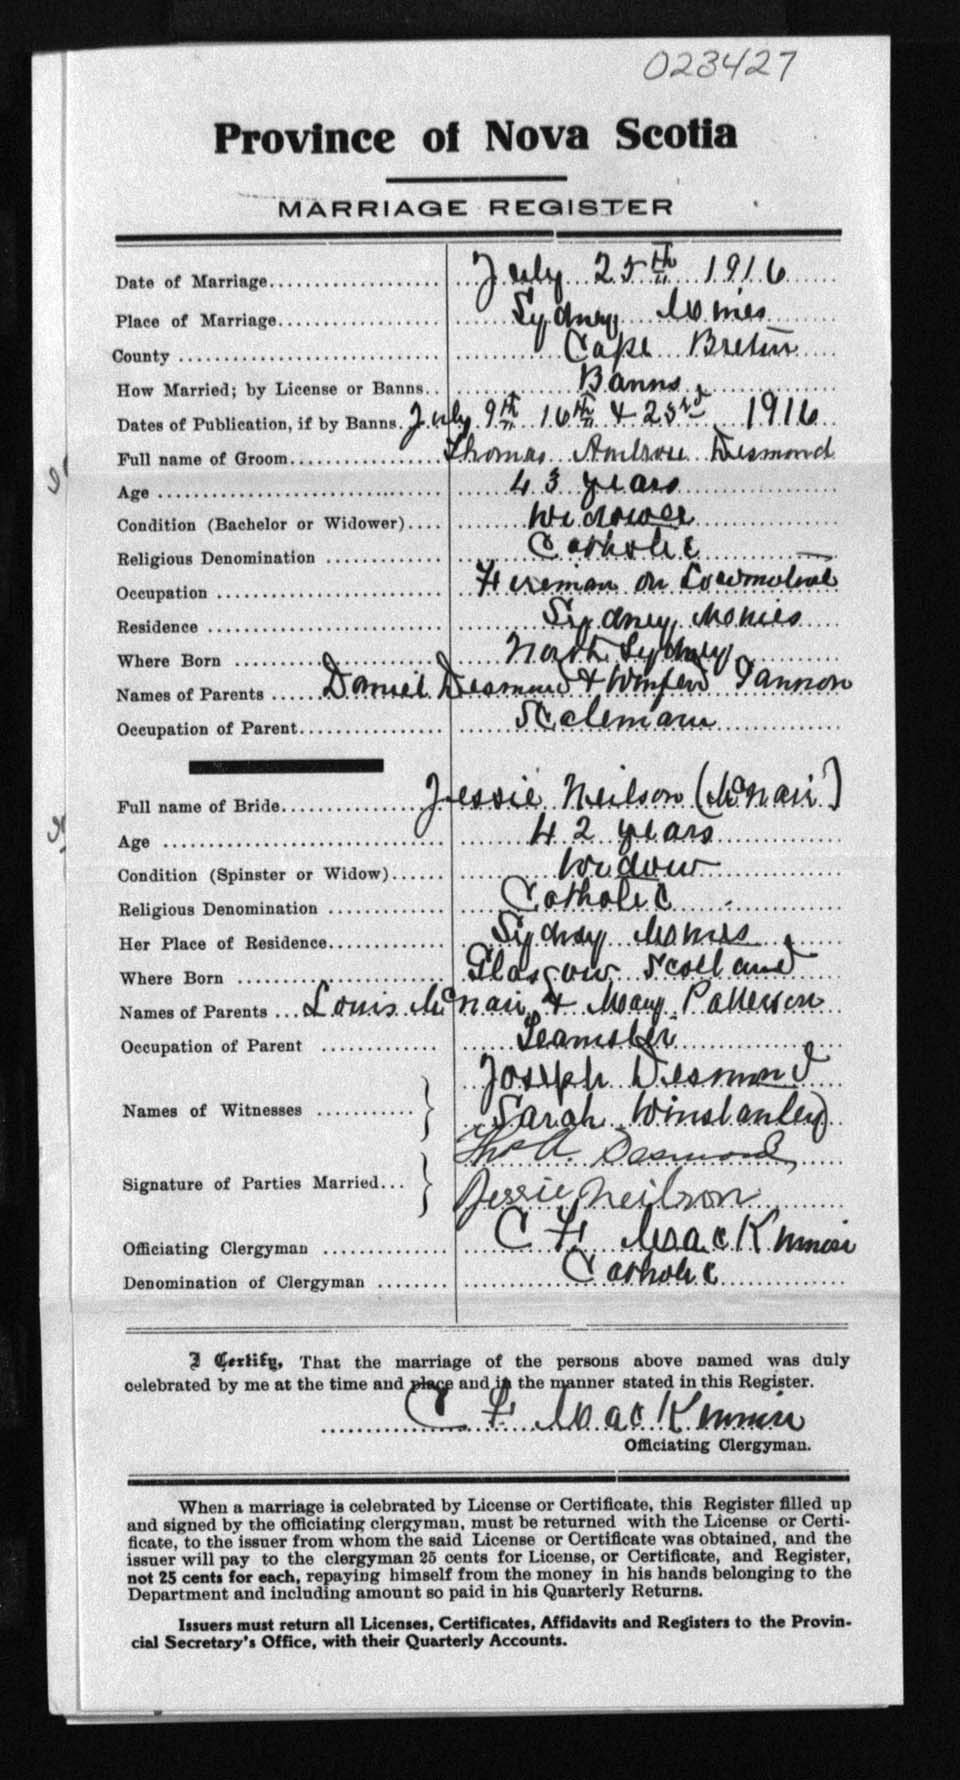 023427
Province of Nova Scotia
MARRIAGE REGISTER
Date of Marriage.................... July 25th 1916
Place of Marriage................... Sydney Mines
County .............................. Cape Breton
How Married; by License or Banns.. Banns
Dates of Publication, if by Banns. July 9th 16th & 23rd 1916
Full name of Groom.................. Thomas Ambrose Desmond
Age ................................. 43 years
Condition (Bachelor or Widower).... Widower
Religious Denomination .............. Catholic
Occupation .......................... Fireman on Locomotive
Residence ........................... Sydney Mines
Where Born .......................... North Sydney
Names of Parents ...... Daniel Desmond & Winifred Gannon
Occupation of Parent................. Scaleman
Full name of Bride................... Jessie Neilson (McNair)
Age ................................. 42 years
Condition (Spinster or Widow)...... Widow
Religious Denomination .............. Catholic
Her Place of Residence.............. Sydney Mines
Where Born .......................... Glasgow Scotland
Names of Parents ... Louis McNair & Mary Patterson
Occupation of Parent ............... Teamster
Joseph Desmond
Names of Witnesses ............
Sarah Winstanley
Thos A. Desmond
Signature of Parties Married...
Jessie Neilson
Officiating Clergyman ............... C F MacKinnon
Denomination of Clergyman ........ Catholic
I Certify, That the marriage of the persons above named was duly
celebrated by me at the time and place and in the manner stated in this Register.
C F MacKinnon
Officiating Clergyman.
When a marriage is celebrated by License or Certificate, this Register filled up
and signed by the officiating clergyman, must be returned with the License or Certi-
ficate, to the issuer from whom the said License or Certificate was obtained, and the
issuer will pay to the clergyman 25 cents for License, or Certificate, and Register,
not 25 cents for each, repaying himself from the money in his hands belonging to the
Department and including amount so paid in his Quarterly Returns.
Issuers must return all Licenses, Certificates, Affidavits and Registers to the Provin-
cial Secretary's Office, with their Quarterly Accounts.